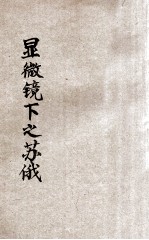 显微镜下之苏俄